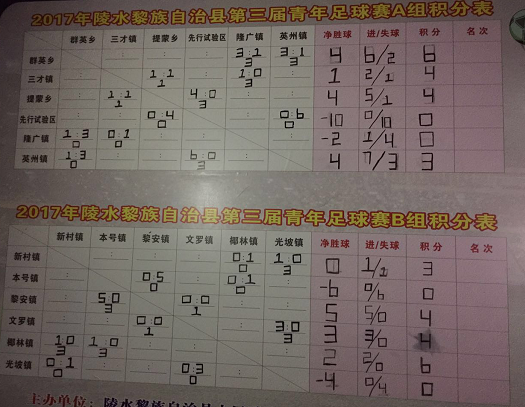 2017年陵水黎族自治县第三届青年足球赛A组积分表
群英乡 三才镇 提蒙乡 先行试验区 隆广镇 英州镇 净胜球 进/失球 积分 名次
群英乡 3:1 3 3:1 3 4 6/2 6
三才镇 1:1 1 1:0 3 1 2/1 4
提蒙乡 1:1 1 4:0 3 4 5/1 4
先行试验区 0:4 0 0:6 0 -10 0/10 0
隆广镇 1:3 0 0:1 0 -2 1/4 0
英州镇 1:3 0 6:0 3 4 7/3 3
2017年陵水黎族自治县第三届青年足球赛B组积分表
新村镇 本号镇 黎安镇 文罗镇 椰林镇 光坡镇 净胜球 进/失球 积分 名次
新村镇 0:1 0 1:0 3 0 1/1 3
本号镇 0:5 0 0:1 0 -6 0/6 0
黎安镇 5:0 3 0:0 1 5 5/0 4
文罗镇 0:0 1 3:0 3 3 3/0 4
椰林镇 1:0 3 1:0 3 2 2/0 6
光坡镇 0:1 0 0:3 0 -4 0/4 0
主办单位：陵水黎族自治县